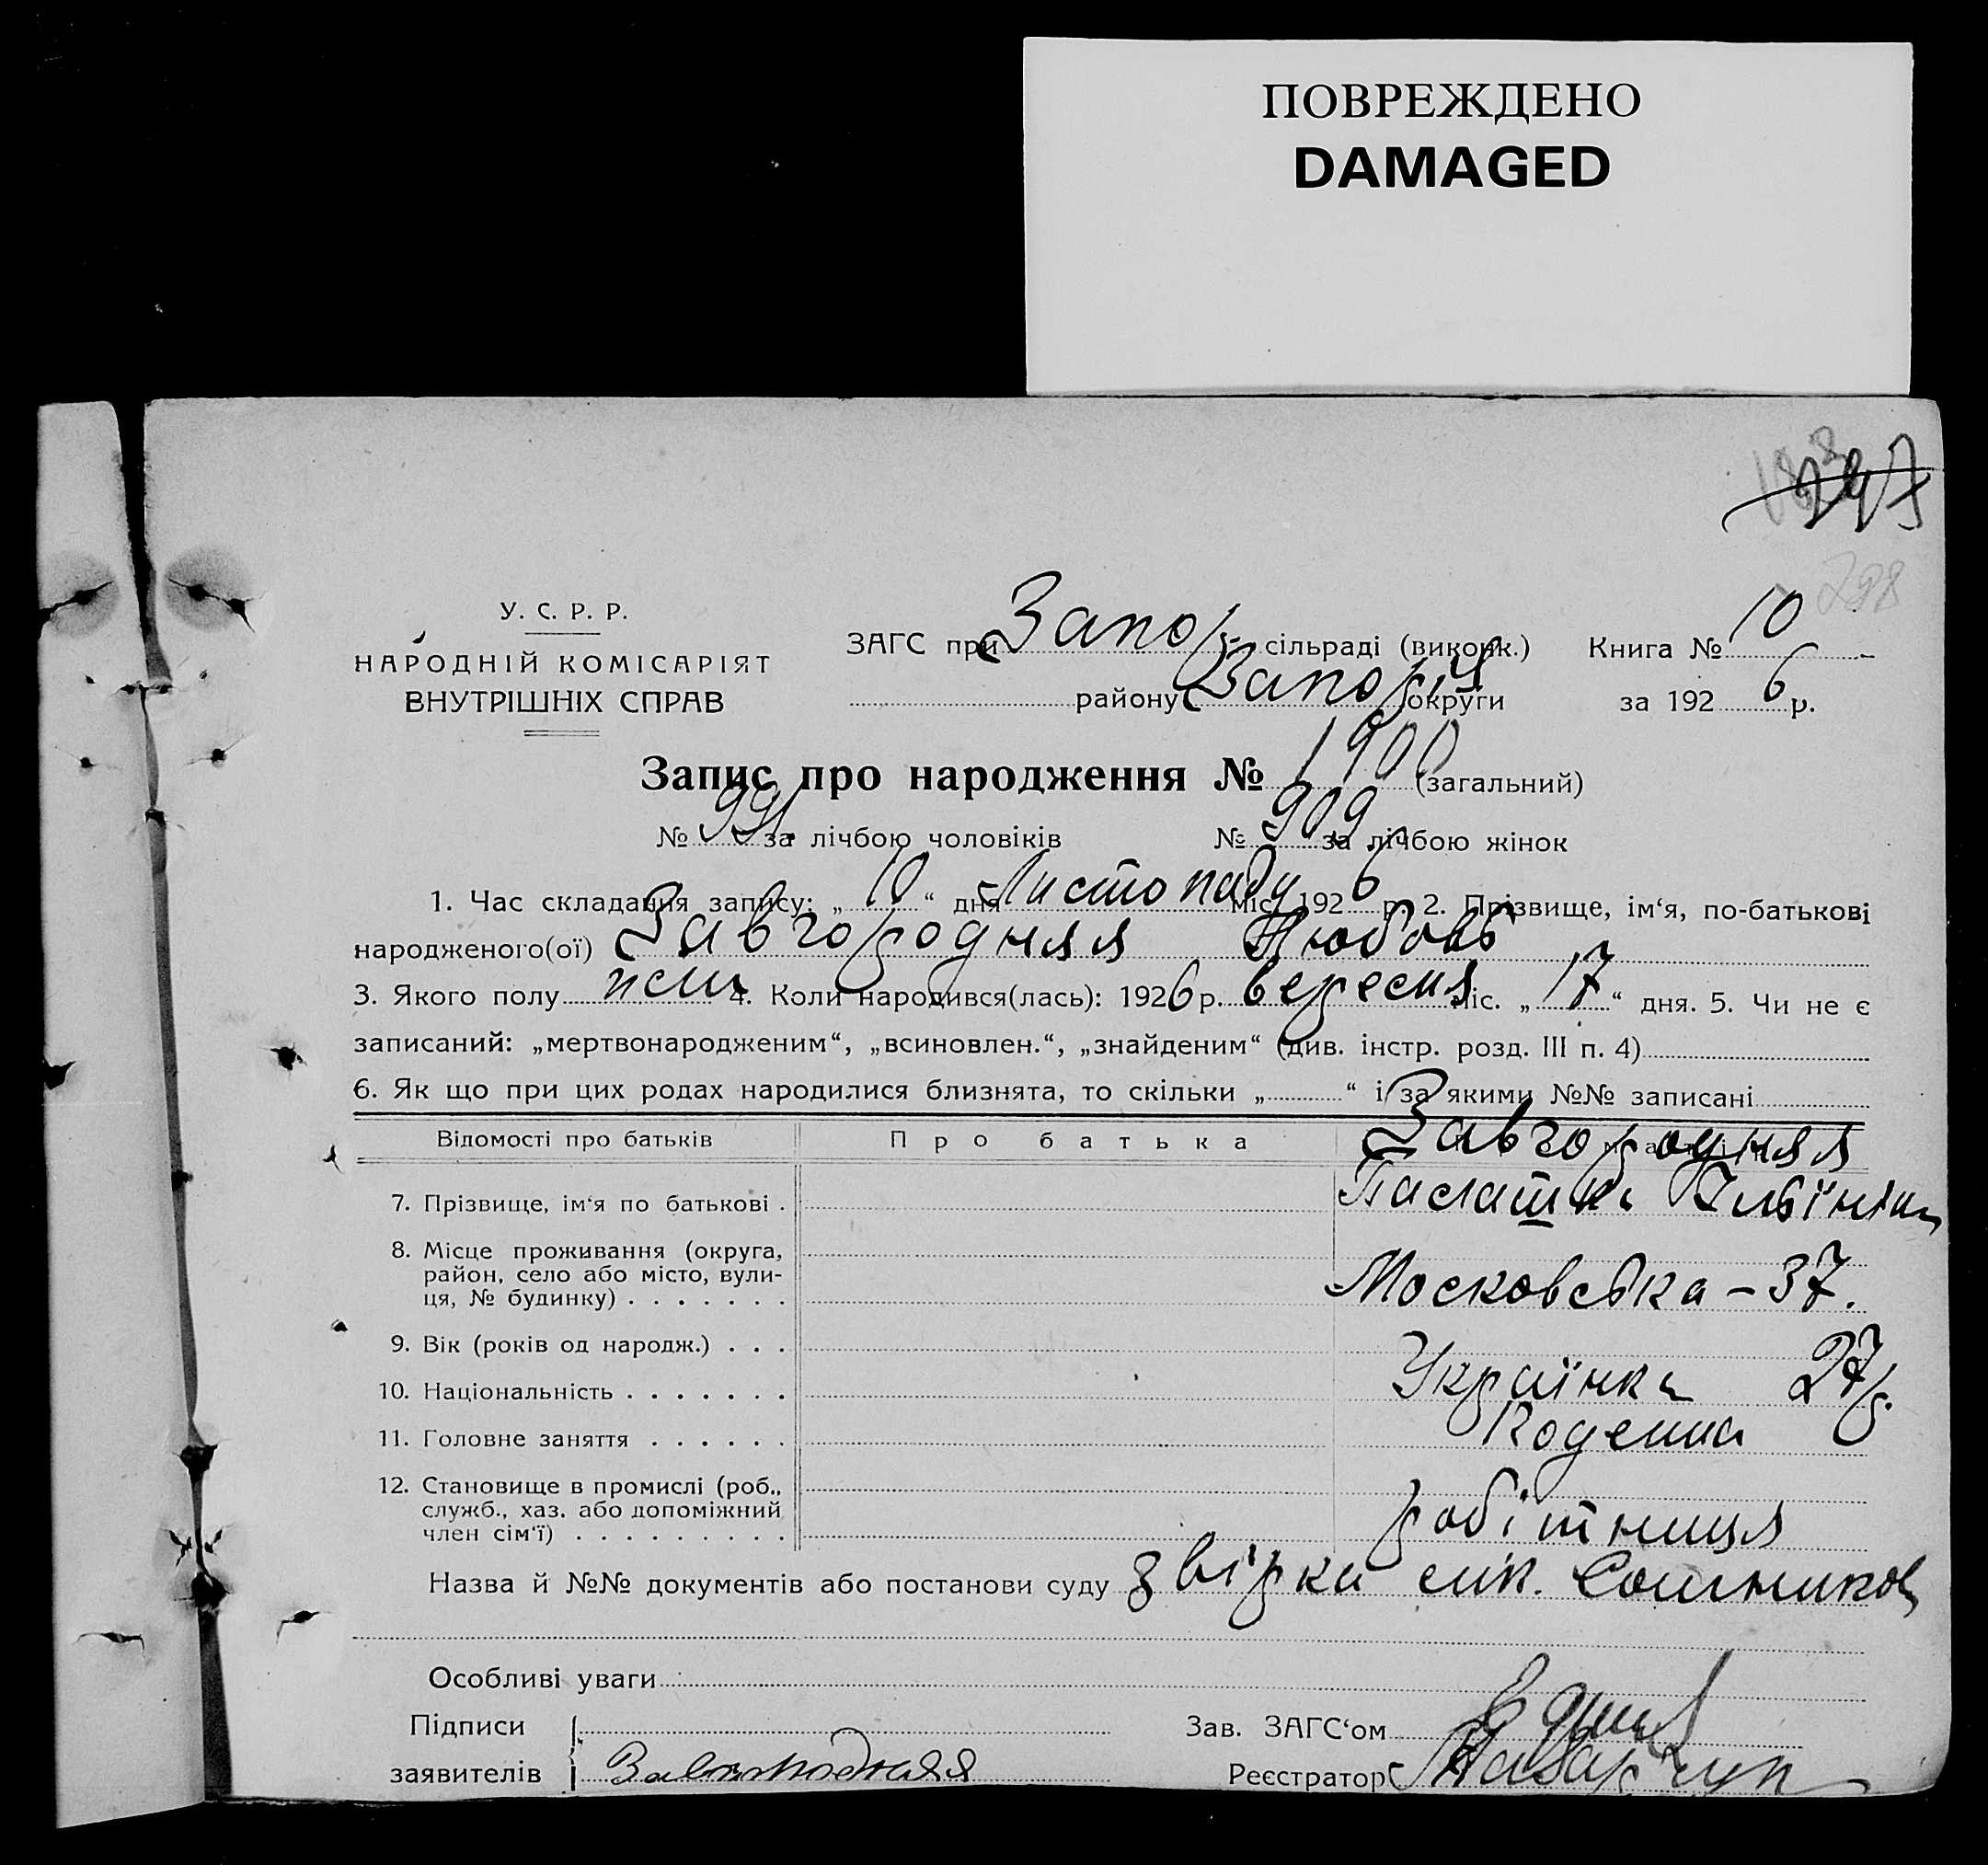 ПОВРЕЖДЕНО
DAMAGED
247
298
У. С. Р. Р.
НАРОДНІЙ КОМІСАРІЯТ
ВНУТРІШНІХ СПРАВ
ЗАГС при Запор сільраді (виконк.) Книга № 10
району Запор округи за 1926 р.
Запис про народження № 1900 (загальний)
№ 991 за лічбою чоловіків № 909 за лічбою жінок
1. Час складання запису: „10“ дня Листопаду міс. 1926 р. 2. Прізвище, ім‘я, по-батькові
народженого(ої) Завгородняя Любовь
3. Якого полу жен 4. Коли народився(лась): 1926 р. вересня міс. „17“ дня. 5. Чи не є
записаний: „мертвонародженим“, „всиновлен.“, „знайденим“ (див. інстр. розд. III п. 4)
6. Як що при цих родах народилися близнята, то скільки „ “ і за якими №№ записані
Відомості про батьків Про батька Завгородняя
7. Прізвище, ім‘я по батькові .
8. Місце проживання (округа,
район, село або місто, вули-
ця, № будинку) . . . . . . . Московська – 37.
9. Вік (років од народж.) . . . 27 р.
10. Національність . . . . . . . Українка
11. Головне заняття . . . . . . Поденна
12. Становище в промислі (роб.,
служб., хаз. або допоміжний
член сім‘ї) . . . . . . . . . робітниця
Назва й №№ документів або постанови суду звірка
Особливі уваги
Підписи Зав. ЗАГС‘ом
заявителів Завгородняя Реєстратор Назарчук